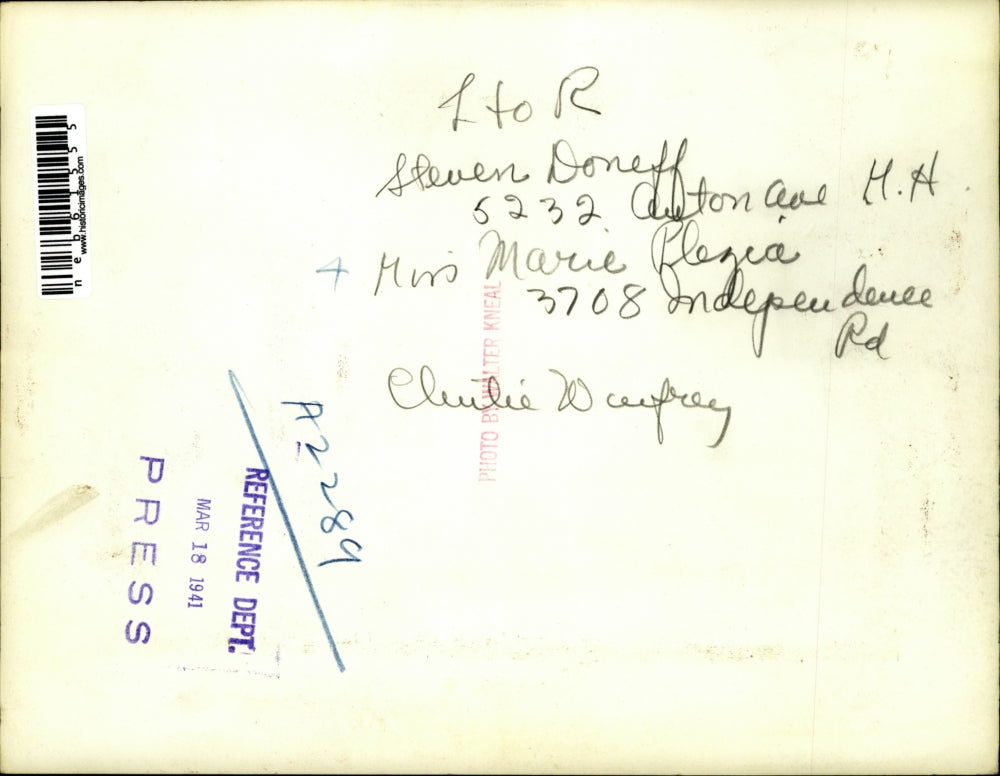 L to R
Steven Doneff
5232 Ave M.H.
Miss Marie Plezia
3708 Independence
Rd
PHOTO BY WALTER KNEAL
A2289
REFERENCE DEPT.
MAR 18 1941
PRESS
www.historicimages.com